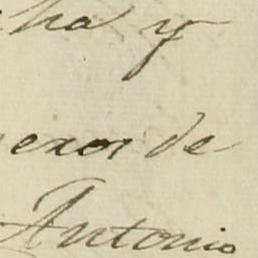 ha y
exos de
Antonio